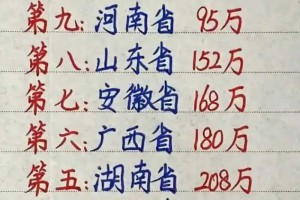 第九:河南省 95万
第八:山东省 152万
第七:安徽省 168万
第六:广西省 180万
第五:湖南省 208万